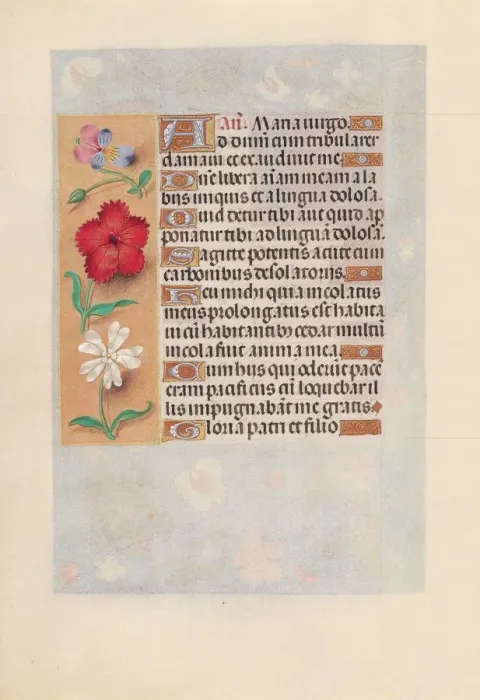 Añ. Maria virgo.
Ad dominũ cum tribularer
clamaui et exaudiuit me.
Dñe libera añam meam a la
bijs iniquis et a lingua dolosa.
Quid detur tibi aut quid ap
ponatur tibi ad linguã dolosã.
Sagitte potentis acute cum
carbonibus desolatorijs.
Heu michi quia incolatus
meus prolongatus est habita
ui cũ habitantibꝫ cedar multũ
incola fuit anima mea.
Cum hijs qui oderũt pacẽ
eram pacificus cũ loquebar il
lis impugnabãt me gratis.
Gloria patri et filio